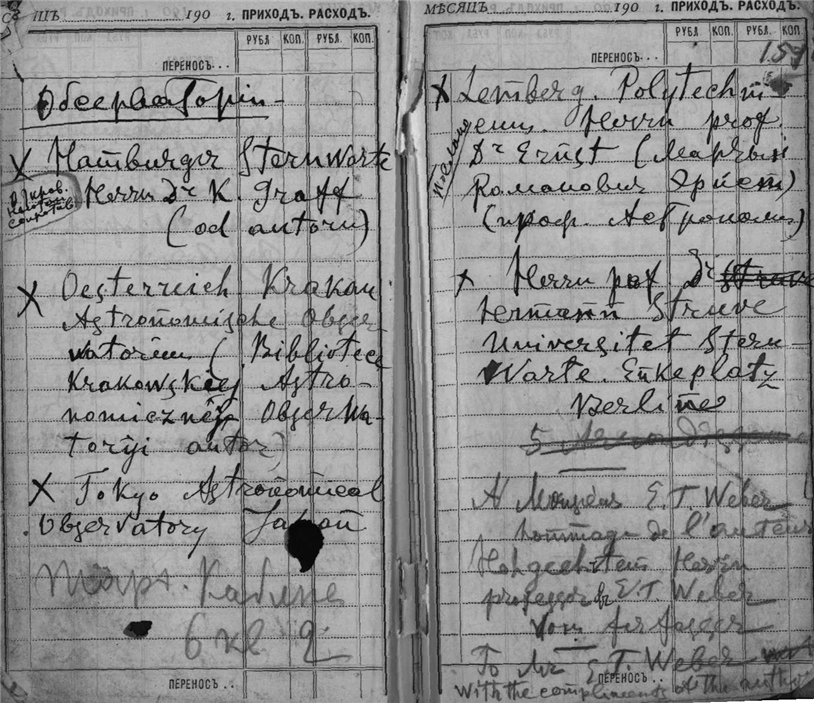 190 г. ПРИХОДЪ. РАСХОДЪ.
РУБЛ КОП. РУБЛ. КОП.
ПЕРЕНОСЪ...
Обсерваторіи
X Hamburger Sternwarte
Herrn Dr K. Graff
(od autoru)
X Oesterreich Krakau
Astronomische Obser
watorium (Biblioteca
Krakowskiej Astro-
nomicznej Obserwa-
toryi autor)
X Tokyo Astronomical
Observatory Japan
6 кл 2
ПЕРЕНОСЪ..
МѢСЯЦЪ 190 г. ПРИХОДЪ. РАСХОДЪ.
РУБЛ КОП. РУБЛ. КОП.
ПЕРЕНОСЪ... 159
X Lemberg. Polytechni
Herrn prof.
Dr Ernst (Марцын
Романович Эрнст)
(проф. Астрономии)
x Herrn prof Dr Struve
Hermann Struve
Universitet Stern-
Warte. Enkeplatz
Berline
A Monsieur E. T Weber
hommage de l'auteur
Herrn
professor Dr E. T Weber
Vom
To Mr E. T. Weber
ПЕРЕНОСЪ..
With the compliments of the author